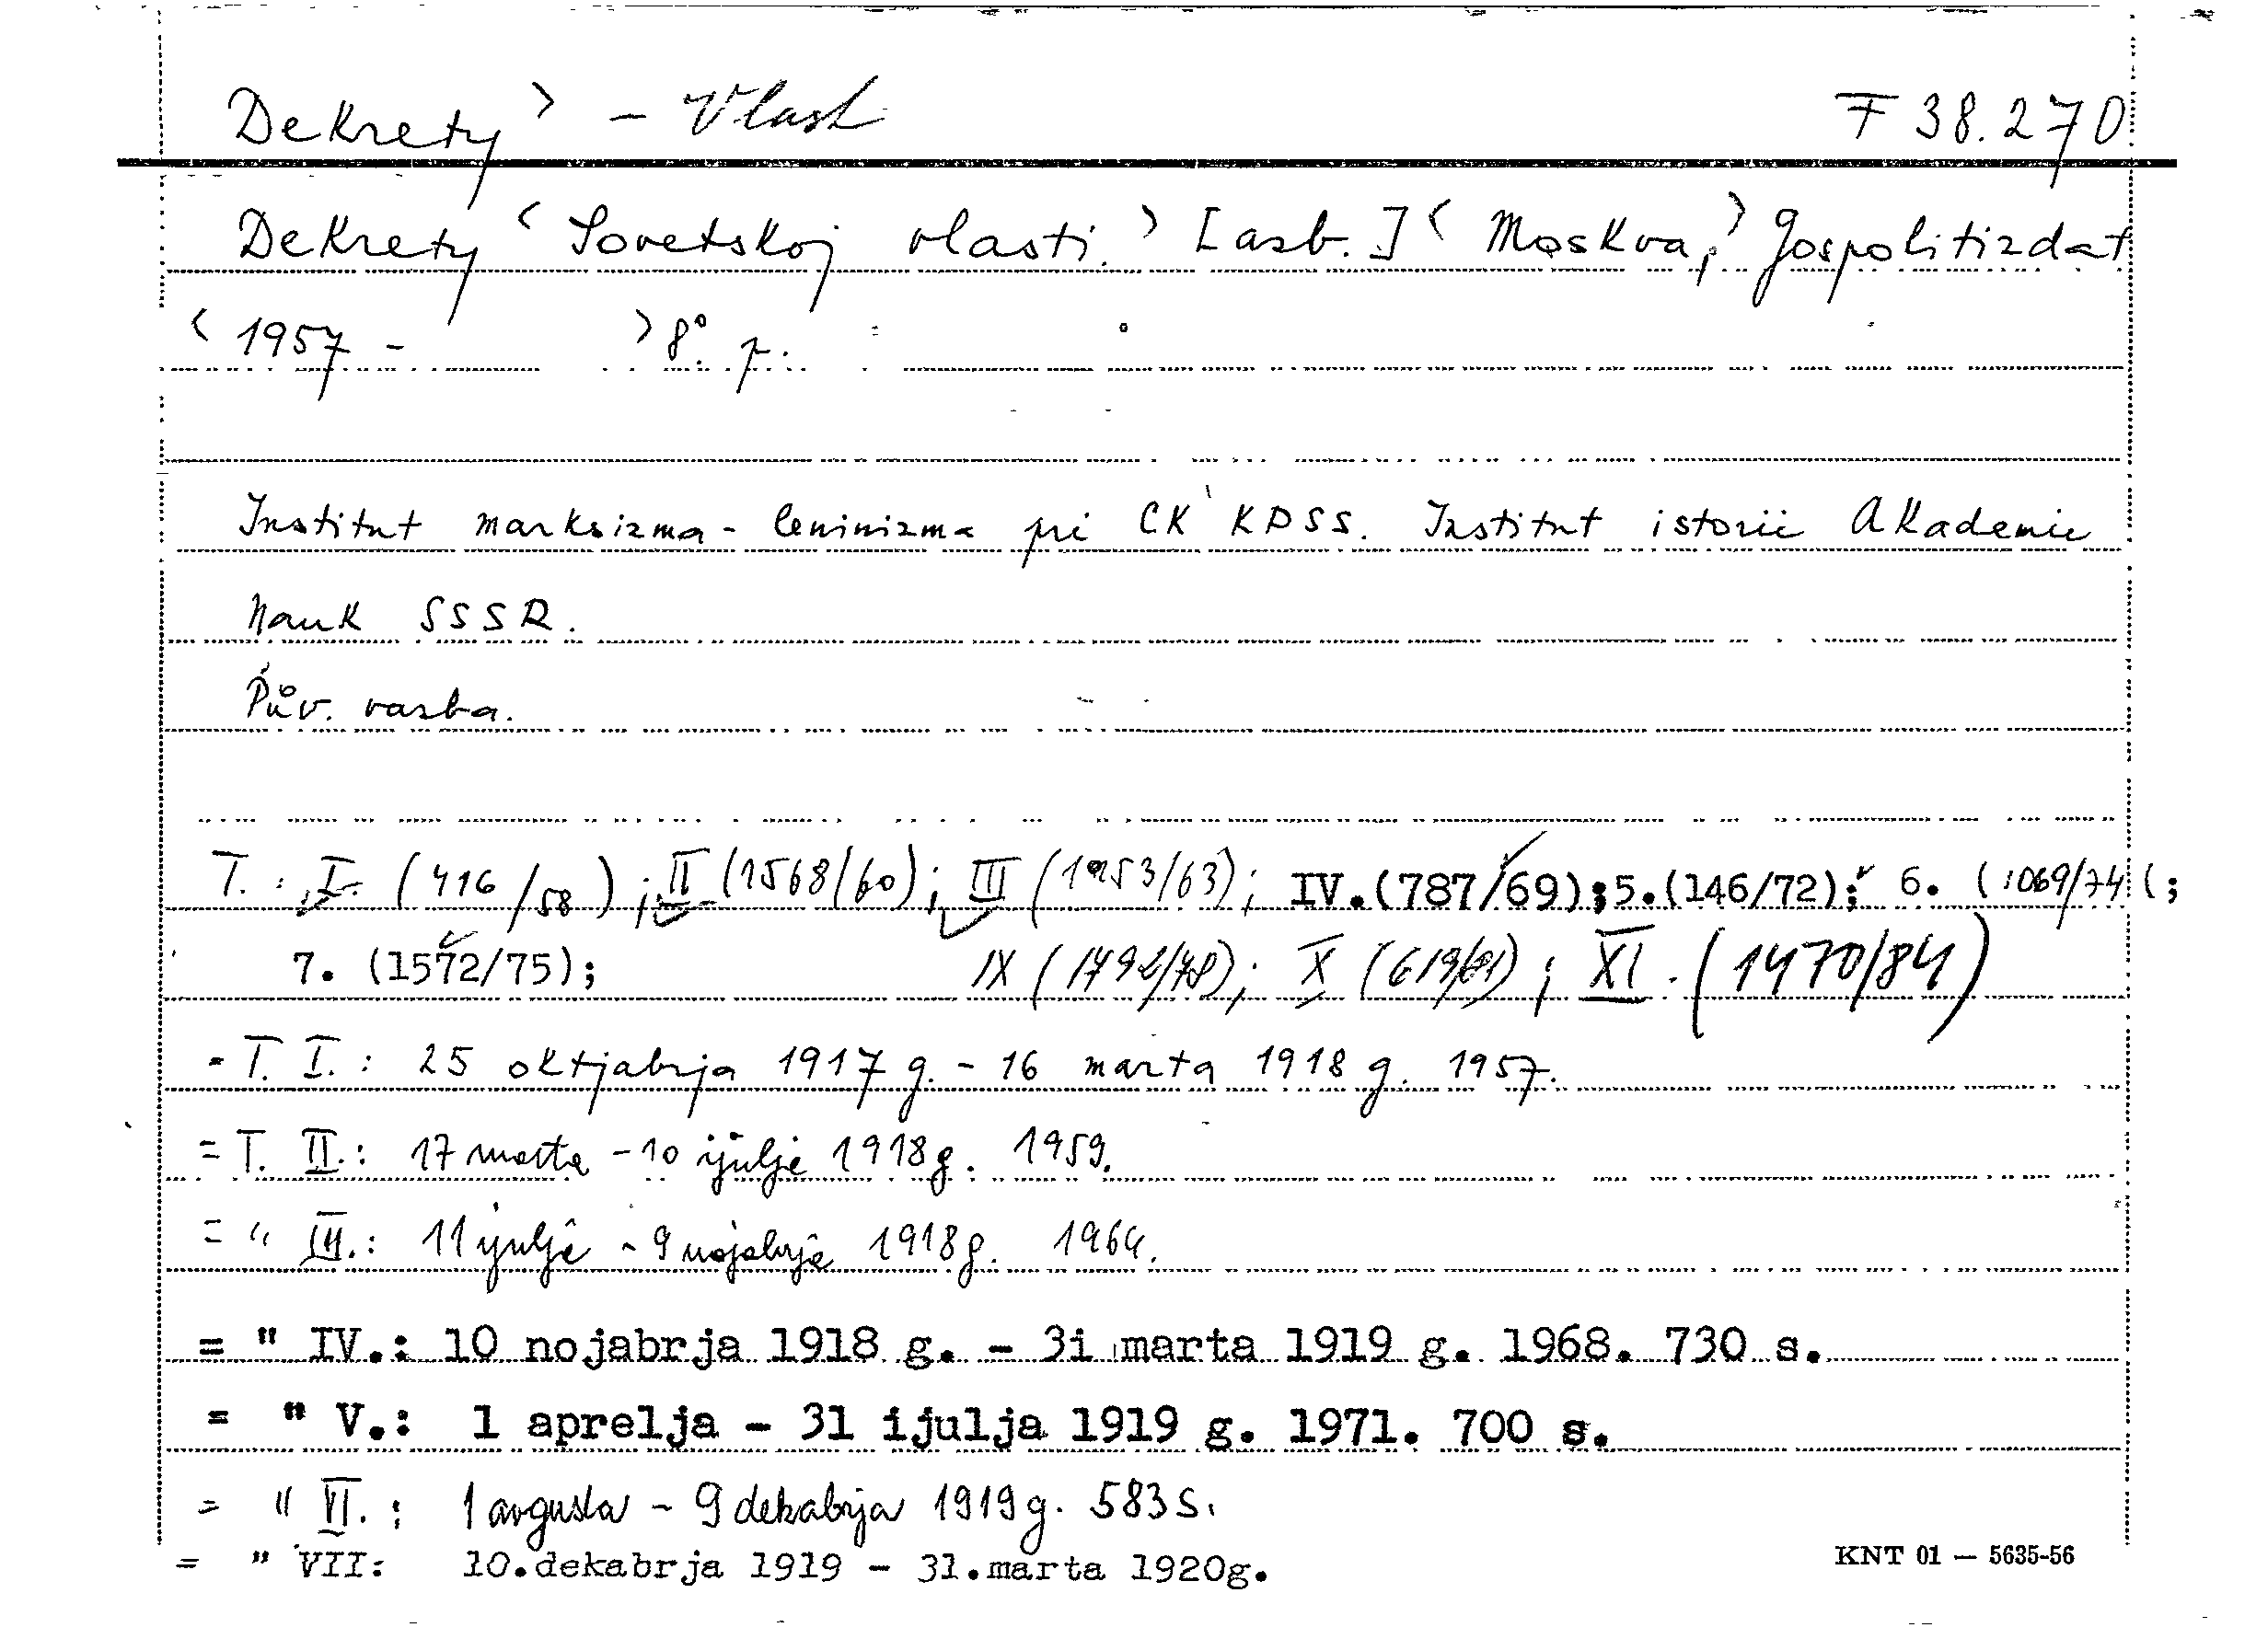 Dekrety > – Vlast F 38.270
Dekrety < Sovetskoj vlasti. > [asb.] < Moskva, > Gospolitizdat
< 1957 – > 8°. p.
Institut marksizma-leninizma pri CK KPSS. Institut istorii Akademie
Nauk SSSR.
Pův. vazba.
T. : I. (416/58); II (1568/60); III (1953/63); IV.(787/69);5.(146/72); 6. (1069/74(;
7. (1572/75); IX (1792/78); X (619/81); XI. (1470/84)
= T. I. : 25 oktjabrja 1917 g. – 16 marta 1918 g. 1957.
= T. II. : 17 marta – 10 ijulja 1918 g. 1959.
= " III. : 11 ijulja – 9 nojabrja 1918 g. 1964.
= " IV.: 10 nojabrja 1918 g. – 31 marta 1919 g. 1968. 730 s.
= " V.: 1 aprelja – 31 ijulja 1919 g. 1971. 700 s.
= " VI. : 1 avgusta – 9 dekabrja 1919 g. 583 s.
= " VII: 10.dekabrja 1919 – 31.marta 1920g.
KNT 01 — 5635-56